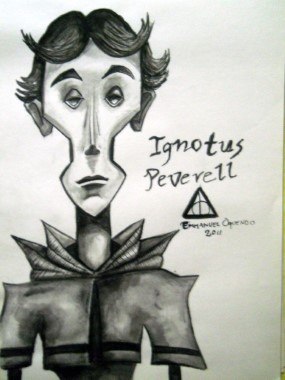 Ignotus
Peverell
Emmanuel
2011